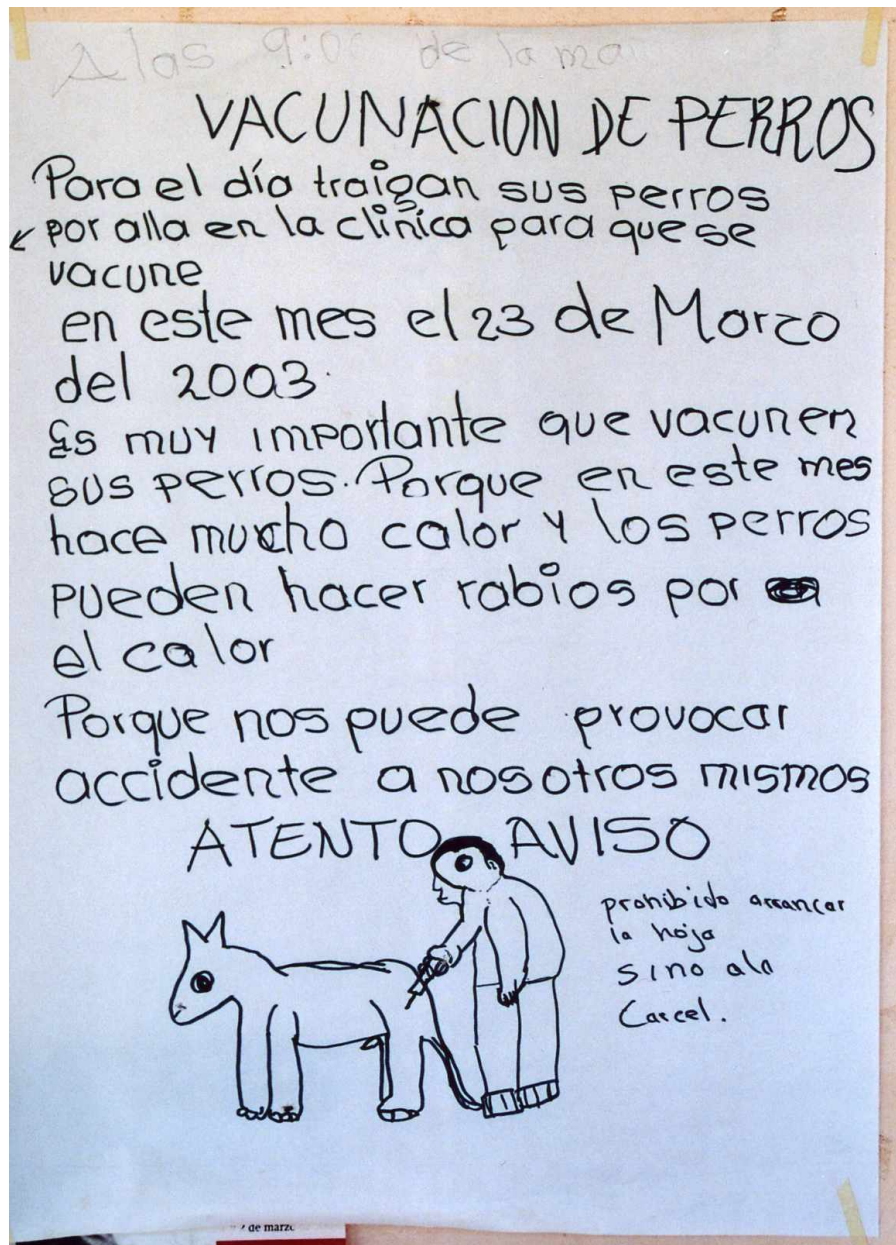 A las 9:00 de la ma
VACUNACION DE PERROS
Para el día traigan sus perros
por alla en la clinica para que se
vacune
en este mes el 23 de Marzo
del 2003.
Es muy importante que vacunen
sus perros. Porque en este mes
hace mucho calor y los perros
pueden hacer rabios por
el calor
Porque nos puede provocar
accidente a nosotros mismos
ATENTO AVISO
prohibido arrancar
la hoja
sino ala
Carcel.
de marzo